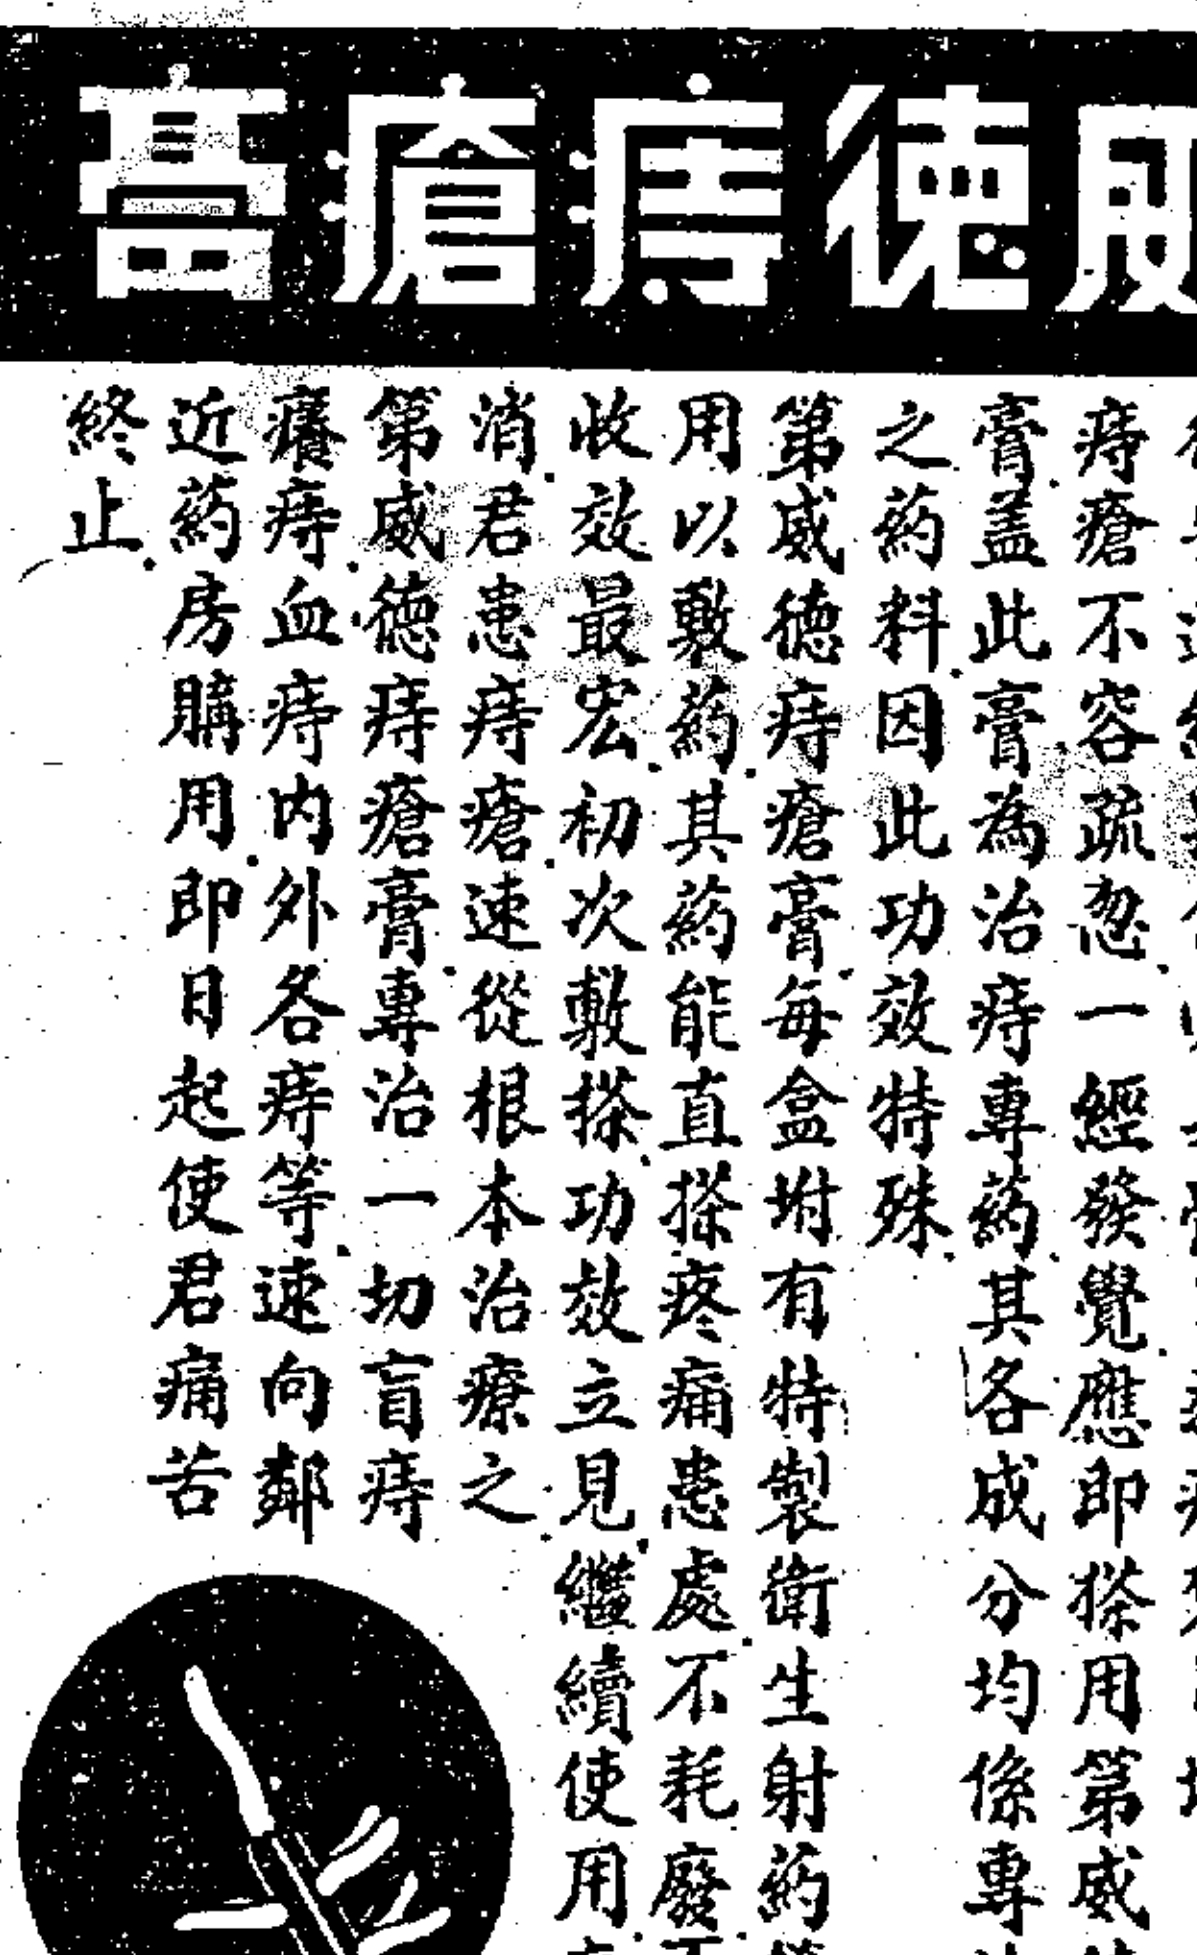 威德痔瘡膏
痔瘡不容疏忽一經發覺應即搽用第威
膏蓋此膏為治痔專藥其各成分均係專
之药料因此功效特殊
第威德痔瘡膏每盒坿有特製衛生射药
用以敷药其药能直搽疼痛患處不耗廢
收效最宏初次敷搽功效立見繼續使用
消君患痔瘡速從根本治療之
第威德痔瘡膏專治一切盲痔
癢痔血痔內外各痔等速向鄰
近药房購用即日起使君痛苦
終止